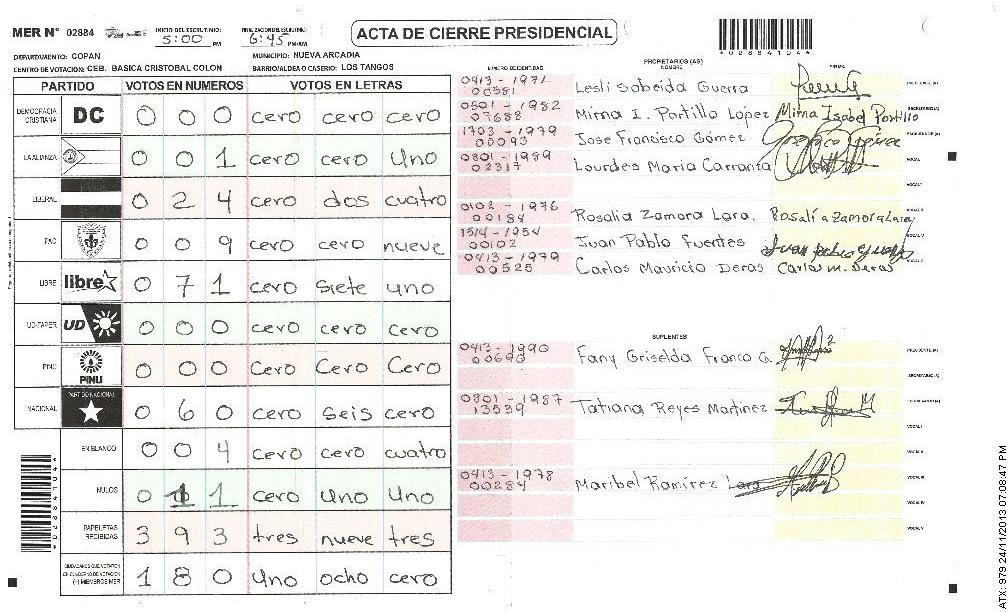 MER N° 02884
INICIO DEL ESCRUTINIO: 5:00 PM
FINALIZACION DEL ESCRUTINIO: 6:45 PM/AM
ACTA DE CIERRE PRESIDENCIAL
4028841044
DEPARTAMENTO: COPAN
MUNICIPIO: NUEVA ARCADIA
CENTRO DE VOTACION: CEB. BASICA CRISTOBAL COLON
BARRIO/ALDEA O CASERIO: LOS TANGOS
PARTIDO VOTOS EN NUMEROS VOTOS EN LETRAS
DEMOCRACIA CRISTIANA DC 0 0 0 cero cero cero
LA ALIANZA 0 0 1 cero cero uno
LIBERAL 0 2 4 cero dos cuatro
PAC 0 0 9 cero cero nueve
LIBRE libre 0 7 1 cero siete uno
UD-FAPER UD 0 0 0 cero cero cero
PINU PINU 0 0 0 cero cero cero
NACIONAL PARTIDO NACIONAL 0 6 0 cero seis cero
EN BLANCO 0 0 4 cero cero cuatro
NULOS 0 1 1 cero uno uno
PAPELETAS RECIBIDAS 3 9 3 tres nueve tres
CIUDADANOS QUE VOTARON EN CUADERNO DE VOTACION (+) MIEMBROS MER 1 8 0 uno ocho cero
NUMERO DE IDENTIDAD PROPIETARIOS (AS) NOMBRE FIRMA
0413 - 1971 00381 Lesli sobeida Guerra
0501 - 1982 07688 Mirna I. Portillo Lopez Mirna Isabel Portillo SECRETARIO (A)
1703 - 1979 00093 Jose Francisco Gómez
0801 - 1989 02317 Lourdes Maria Carranza VOCAL I
0102 - 1976 00184 Rosalia Zamora Lara. Rosalía Zamora Lara
1514 - 1954 00102 Juan Pablo Fuentes
0413 - 1979 00525 Carlos Mauricio Deras Carlos M. Deras
SUPLENTES
0413 - 1990 00690 Fany Griselda Franco G. PRESIDENTE (A)
SECRETARIO (A)
0801 - 1987 13539 Tatiana Reyes Martinez
VOCAL I
VOCAL II
0413 - 1978 00284 Maribel Ramírez VOCAL III
VOCAL IV
VOCAL V
ATX: 979 24/11/2013 07:08:47 PM